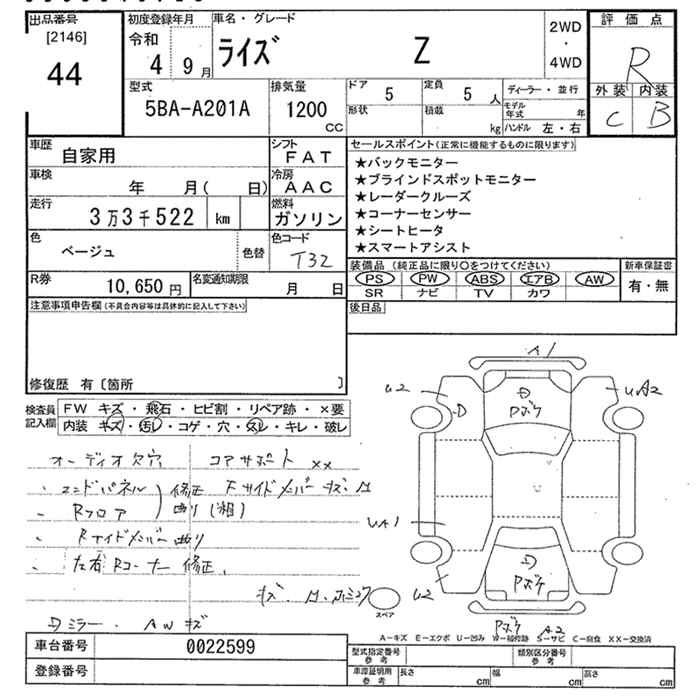 出品番号
[2146]
44
初度登録年月
令和
4 9月
車名・グレード
ライズ Z
2WD
・
4WD
評価点
R
外装 内装
C B
型式
5BA-A201A
排気量
1200
CC
ドア
5
定員
5 人
形状
積載
kg
ディーラー・並行
モデル年式 年
ハンドル 左・右
車歴
自家用
シフト
FAT
車検
年 月( 日)
冷房
AAC
走行
3万3千522 km
燃料
ガソリン
色
ベージュ
色替
色コード
T32
R券
10,650 円
名変通知期限
月 日
セールスポイント(正常に機能するものに限ります)
★バックモニター
★ブラインドスポットモニター
★レーダークルーズ
★コーナーセンサー
★シートヒータ
★スマートアシスト
装備品(純正品に限り○をつけてください)
PS PW ABS エアB AW
SR ナビ TV カワ
新車保証書
有・無
後日品
注意事項申告欄(不具合内容等は具体的に記入して下さい)
修復歴 有〔箇所 〕
検査員記入欄
FW キズ・飛石・ヒビ割・リペア跡・×要
内装 キズ・汚レ・コゲ・穴・スレ・キレ・破レ
オーディオ欠穴 コアサポート ××
エンドパネル 修正 Fサイドメンバー キズ・凹
Rフロア 曲り
Rサイドメンバー 曲り
左右Rコーナー 修正
Dミラー・AWキズ
A1
U2
UA2
D
D
Pボケ
UA1
D
Pボケ
U2
Pボケ
A2
スペア
A-キズ E-エクボ U-凹み W-補修跡 S-サビ C-腐食 XX-交換済
車台番号
0022599
登録番号
型式指定番号
参考
類別区分番号
参考
車庫証明用
参考
長さ cm
幅 cm
高さ cm